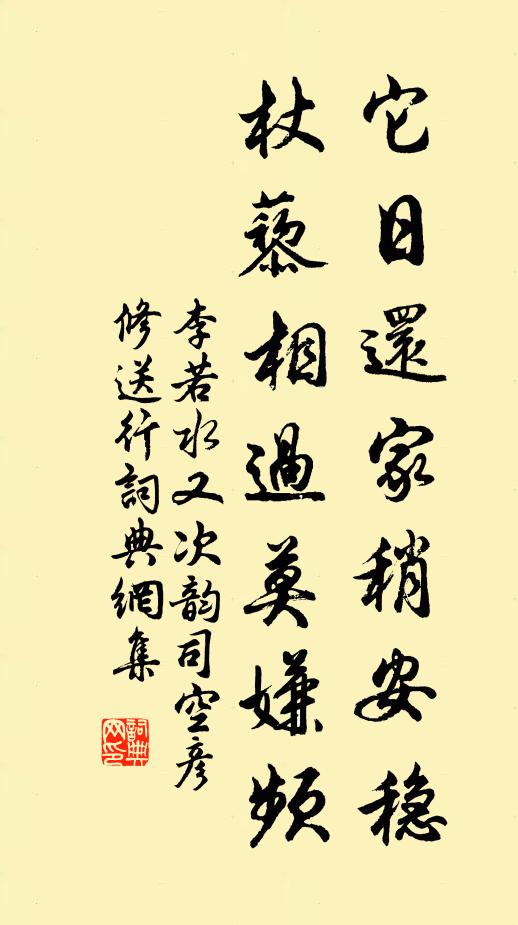 它日還家稍安穩
杖藜相過莫嫌頻
李若水又次韵司空彦
修送行詞典網集
詞典网印